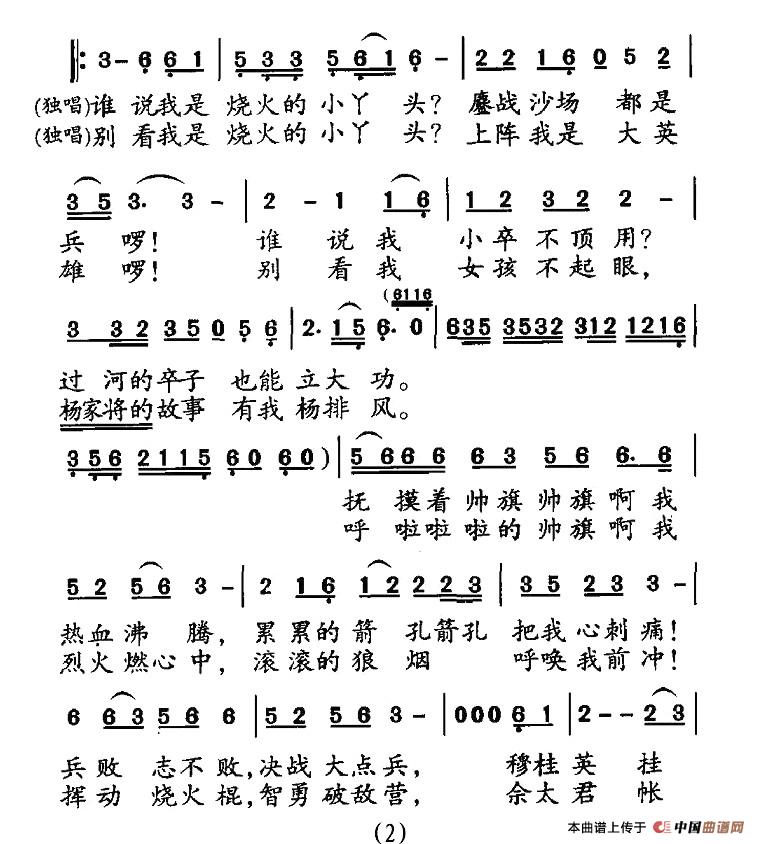 3 - 6 6 1 | 5 3 3 5 6 1 6 - | 2 2 1 6 0 5 2 |
(独唱)谁 说我是 烧火的 小丫 头? 鏖战沙场 都是
(独唱)别 看我是 烧火的 小丫 头? 上阵我是 大英
3 5 3. 3 - | 2 - 1 1 6 | 1 2 3 2 2 - |
兵 啰! 谁 说 我 小卒不顶用?
雄 啰! 别 看 我 女孩不起眼,
(6116
3 3 2 3 5 0 5 6 | 2. 1 5 6. 0 | 635 3532 312 1216 |
过 河的卒子 也能 立大 功。
杨家将的故事 有我 杨排 风。
3 5 6 2 1 1 5 6 0 6 0 ) | 5 6 6 6 6 3 5 6 6. 6 |
抚 摸着帅旗帅旗啊我
呼 啦啦啦的帅旗啊我
5 2 5 6 3 - | 2 1 6 1 2 2 2 3 | 3 5 2 3 3 - |
热血沸 腾, 累累的箭 孔箭孔 把我心刺痛!
烈火燃心中, 滚滚的狼 烟 呼唤我前冲!
6 6 3 5 6 6 | 5 2 5 6 3 - | 0 0 0 6 1 | 2 - - 2 3 |
兵败 志不败,决战大点兵, 穆桂英 挂
挥动 烧火棍,智勇破敌营, 佘太君 帐
(2)
本曲谱上传于 中国曲谱网